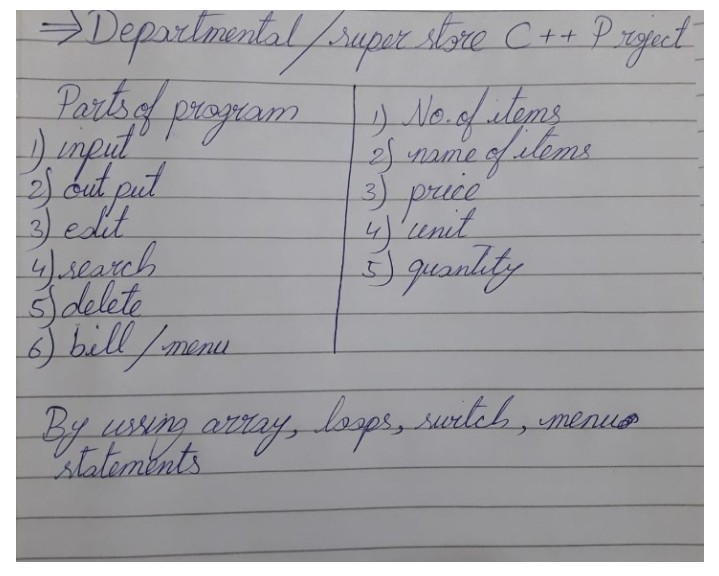 ⇒ Departmental / super store C++ Project
Parts of program
1) input
2) out put
3) edit
4) search
5) delete
6) bill / menu
1) No. of items
2) name of items
3) price
4) unit
5) quantity
By ussing array, loops, switch, menu
statements